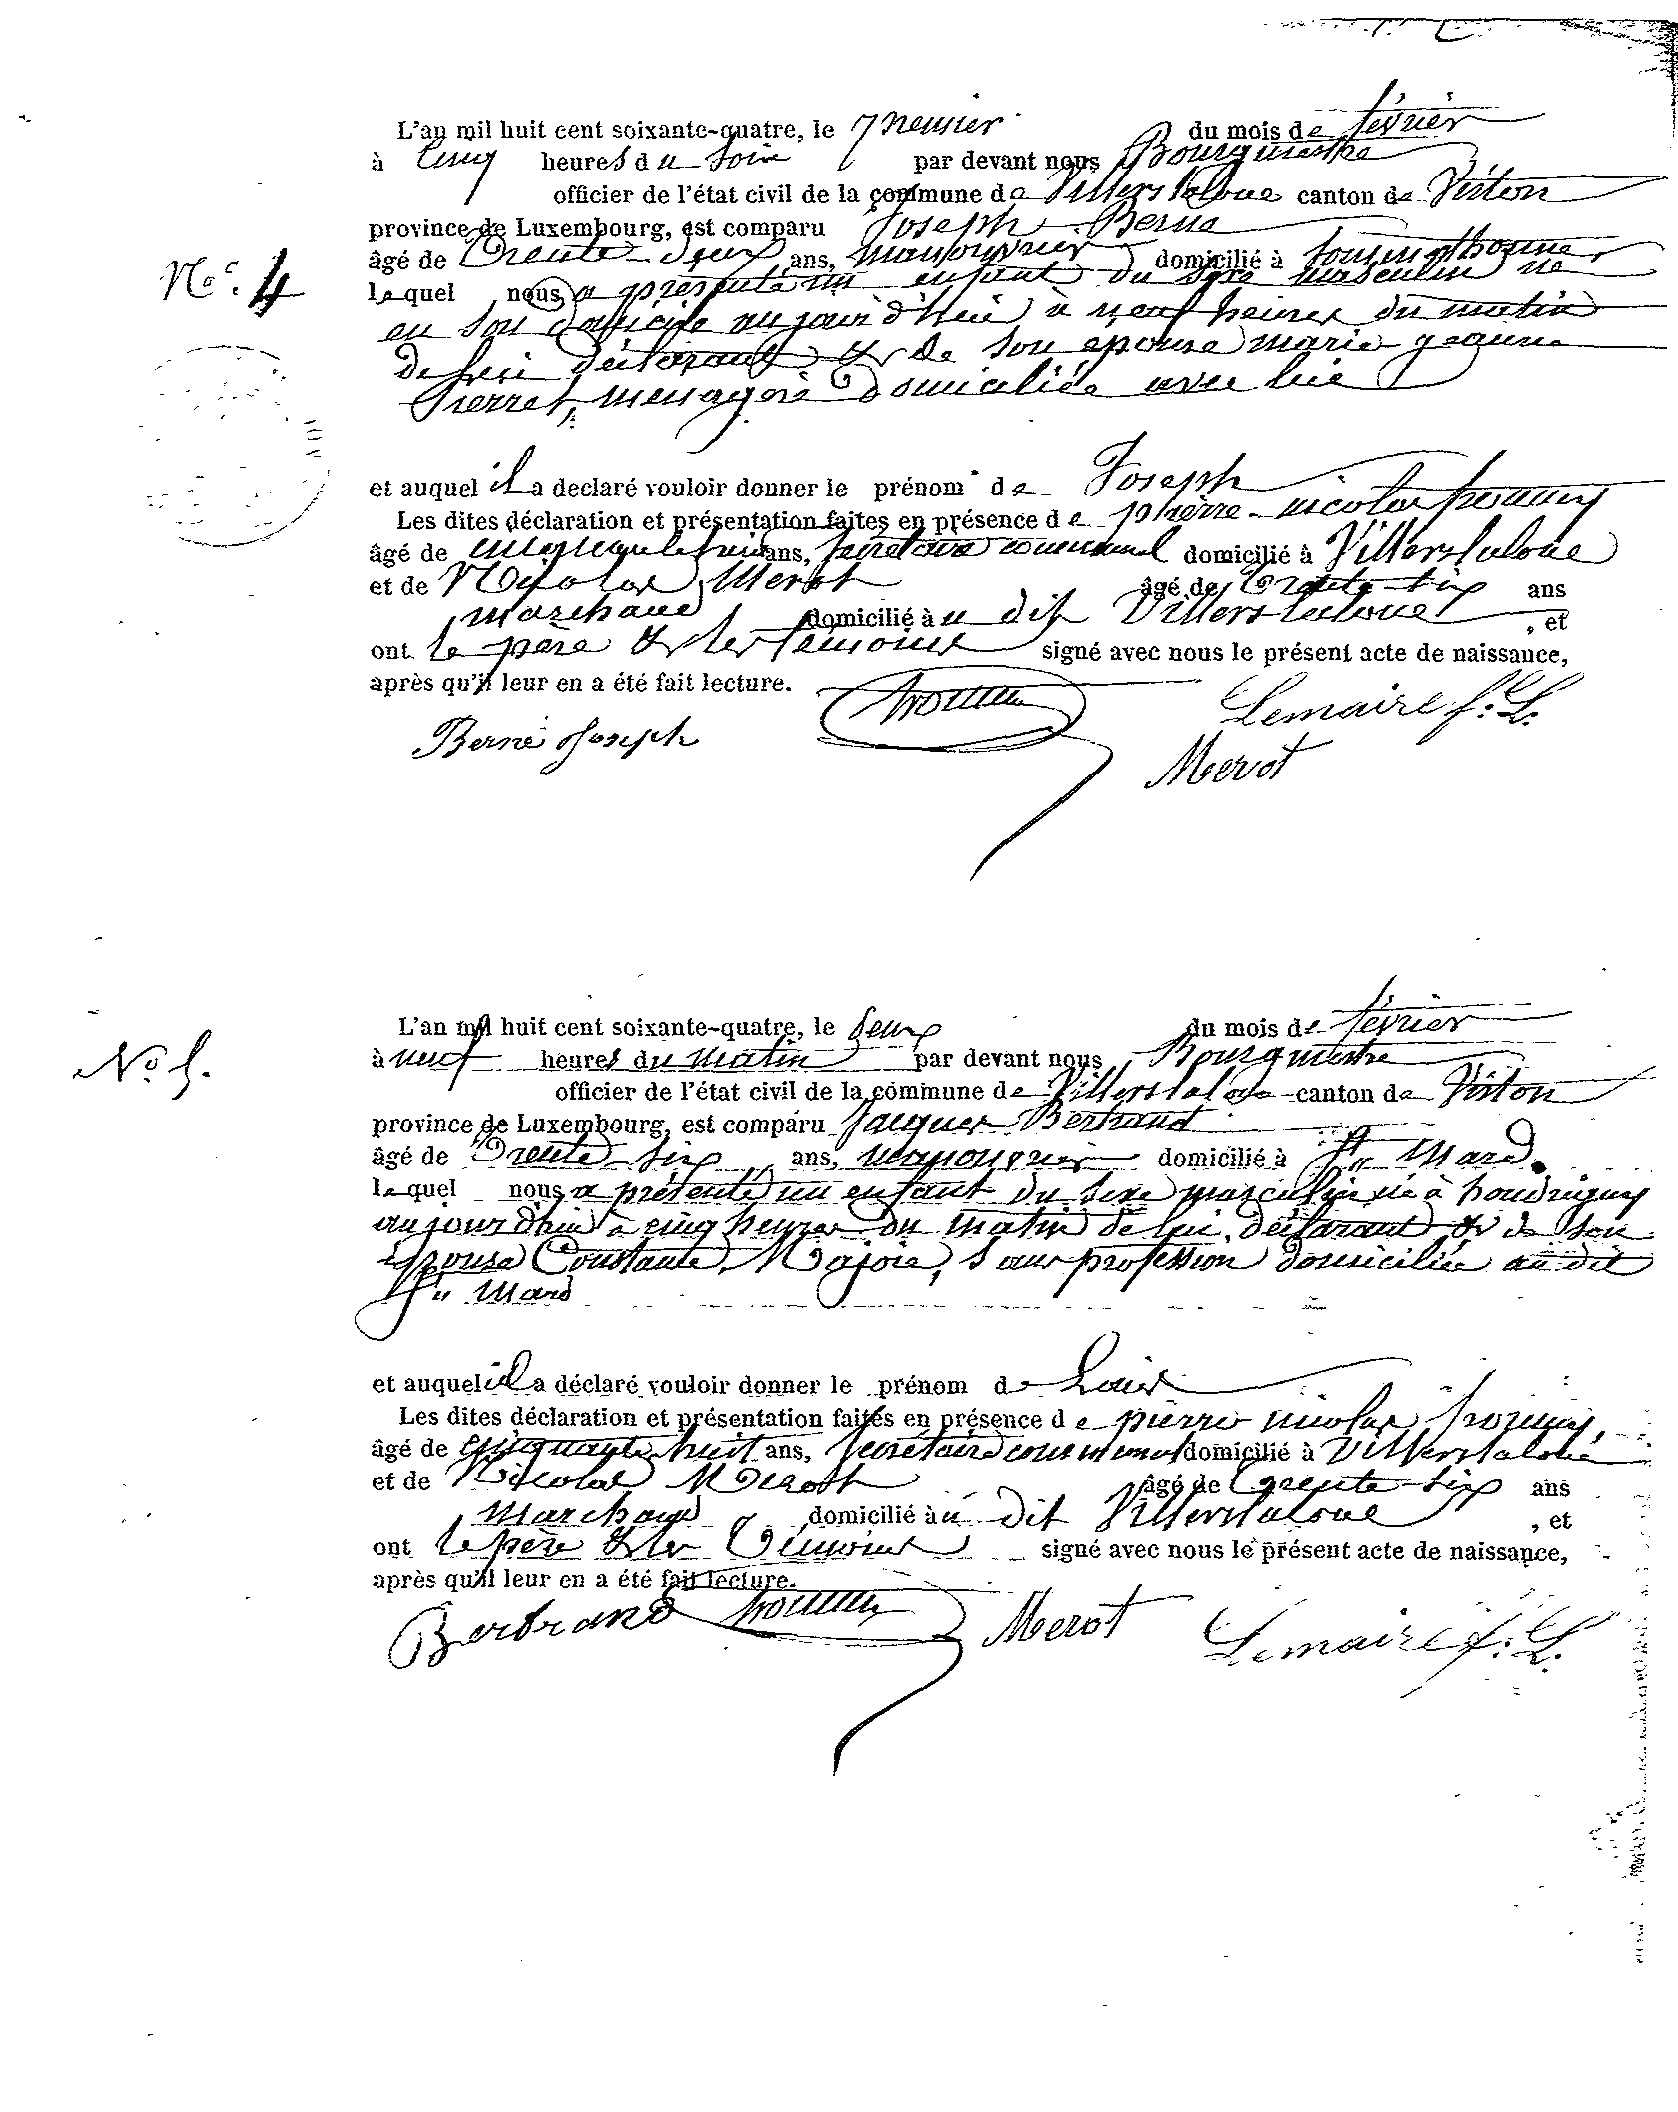 L'an mil huit cent soixante-quatre, le premier du mois de février
à cinq heures du soir par devant nous Bourgmestre
officier de l'état civil de la commune de Villers laloue canton de Virton
province de Luxembourg, est comparu Joseph Berne
âgé de Trente-deux ans, manouvrier domicilié à
No. 4
lequel nous a présenté un enfant du sexe masculin né
en son domicile aujourd'hui à neuf heures du matin
de lui déclarant & de son epouse marie jeanne
Pierret, menagère domiciliée avec lui
et auquel il a declaré vouloir donner le prénom de Joseph
Les dites déclaration et présentation faites en présence de pierre-nicolas
âgé de cinquante huit ans, secretaire communal domicilié à Villerslaloue
et de Nicolas Merot âgé de Trente-six ans
marchand domicilié à u dit Villerslaloue, et
ont le père & les témoins signé avec nous le présent acte de naissance,
après qu'il leur en a été fait lecture.
Lemaire f. L.
Berne Joseph
Merot
L'an mil huit cent soixante-quatre, le deux du mois de février
No 5.
à neuf heures du matin par devant nous Bourgmestre
officier de l'état civil de la commune de Villerslaloue canton de Virton
province de Luxembourg, est comparu Jacques Bertrand
âgé de Trente-six ans, manouvrier domicilié à St Mard.
lequel nous a présenté un enfant du sexe masculin né à houdrigny
aujourd'hui à cinq heures du matin de lui, déclarant & de son
épouse Constante Majoie, sans profession domiciliée au dit
St Mard
et auquel il a déclaré vouloir donner le prénom de Louis
Les dites déclaration et présentation faites en présence de pierre nicolas
âgé de cinquante huit ans, secrétaire communal domicilié à Villerslaloue
et de Nicolas Merot âgé de Trente-six ans
marchand domicilié à u dit Villerslaloue, et
ont le père & les Témoins signé avec nous le présent acte de naissance,
après qu'il leur en a été fait lecture.
Bertrand Merot Lemaire f. L.